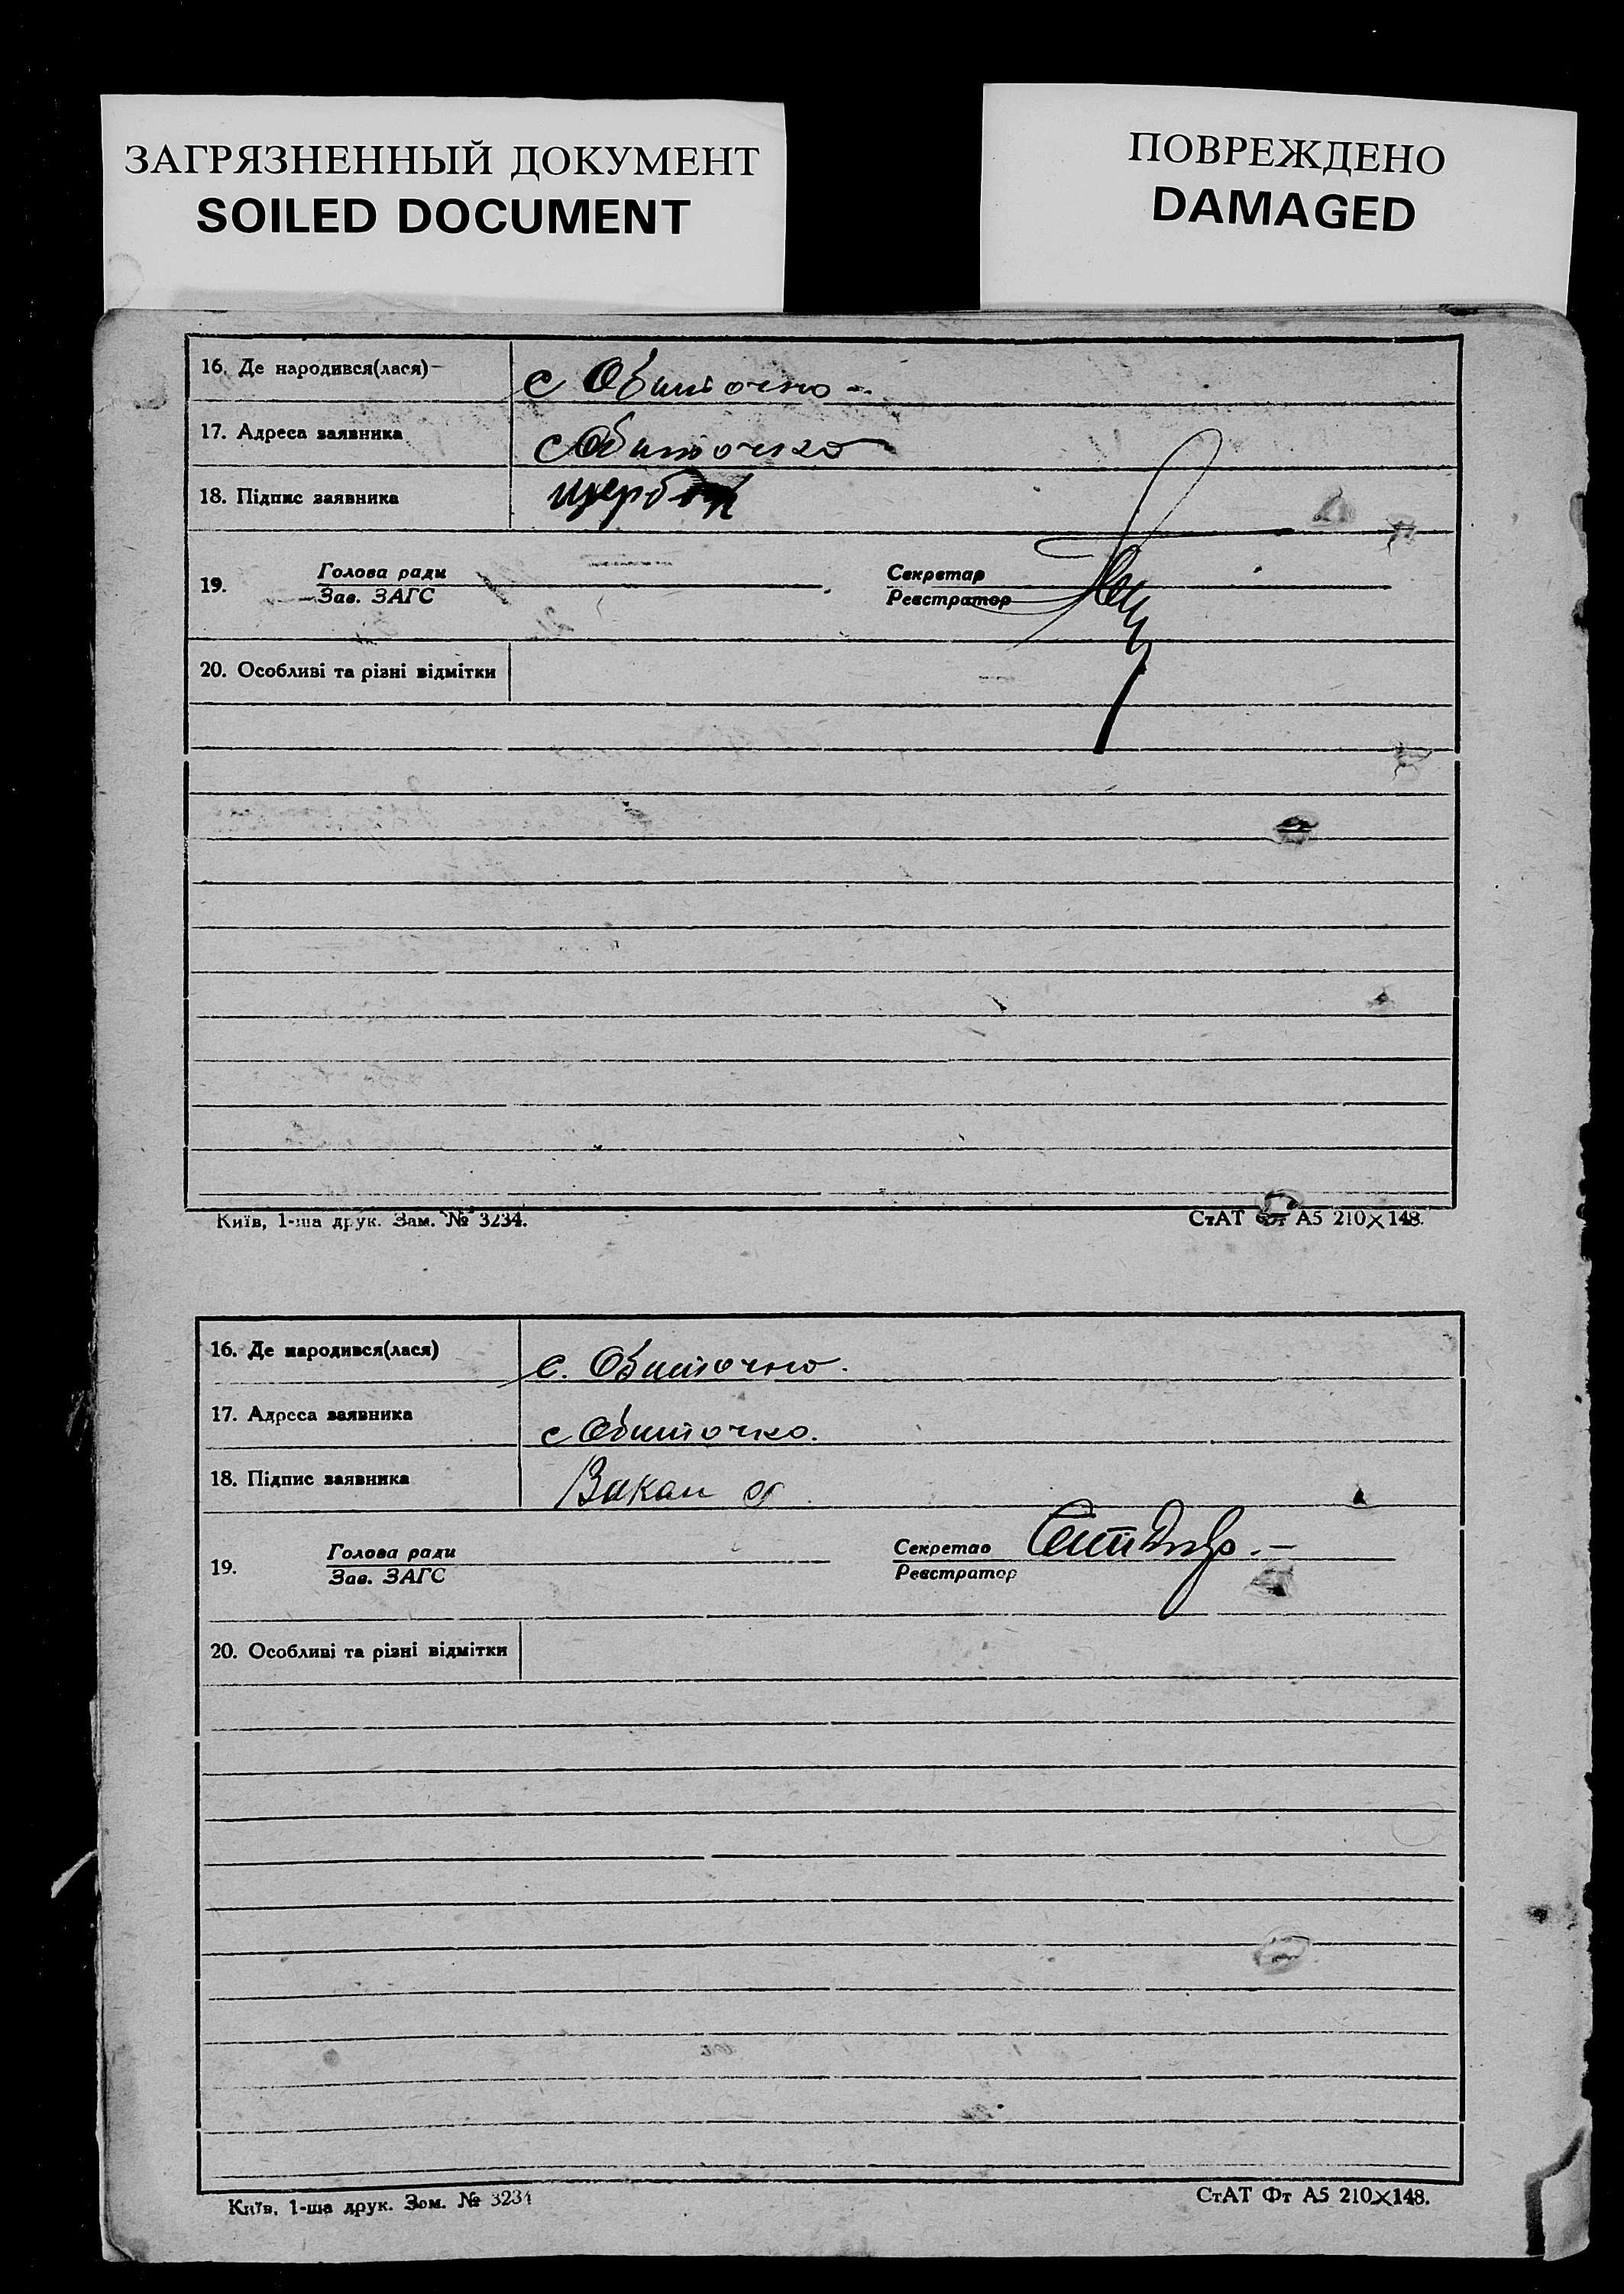 ЗАГРЯЗНЕННЫЙ ДОКУМЕНТ
SOILED DOCUMENT
ПОВРЕЖДЕНО
DAMAGED
16. Де народився(лася) с Обиточно
17. Адреса заявника с Обиточно
18. Підпис заявника
19. Голова ради
Зав. ЗАГС
Секретар
Реєстратор
20. Особливі та різні відмітки
Київ, 1-ша друк. Зам. № 3234.
СтАТ Фт А5 210×148.
16. Де народився(лася) с. Обиточно.
17. Адреса заявника с Обиточно.
18. Підпис заявника Вакал
19. Голова ради
Зав. ЗАГС
Секретар
Реєстратор
20. Особливі та різні відмітки
Київ, 1-ша друк. Зом. № 3234
СтАТ Фт А5 210×148.